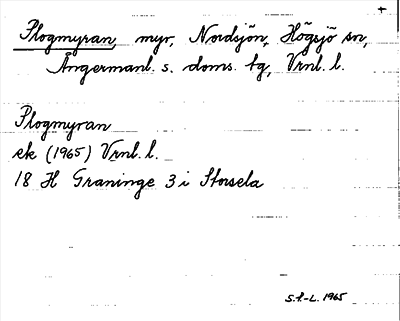 +
Plogmyran, myr, Nordsjön, Högsjö sn,
Ångermanl. s. doms. tg, Vrnl. l.
Plogmyran
ek (1965) Vrnl. l.
18 H Graninge 3 i Storsela
S.f.-L. 1965